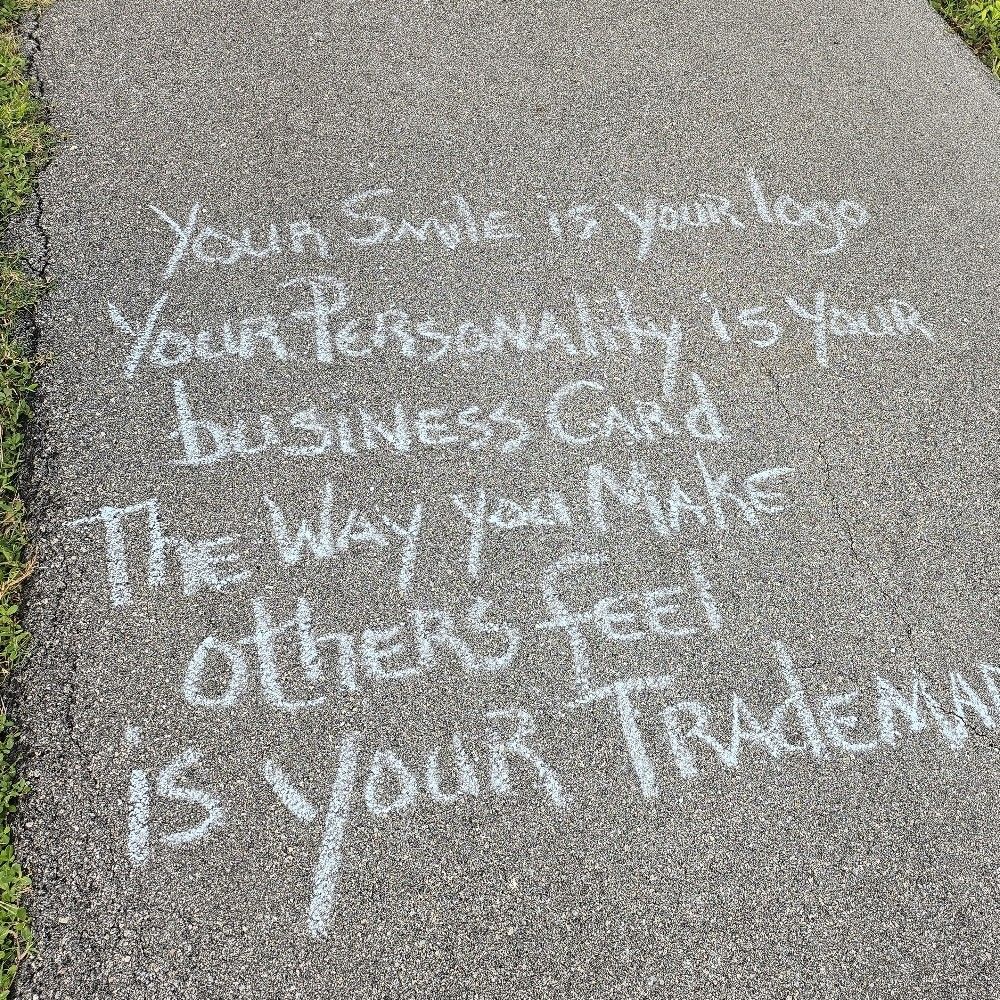 Your Smile is your logo
Your Personality is your
business Card
The Way you Make
others feel
is your Tradema